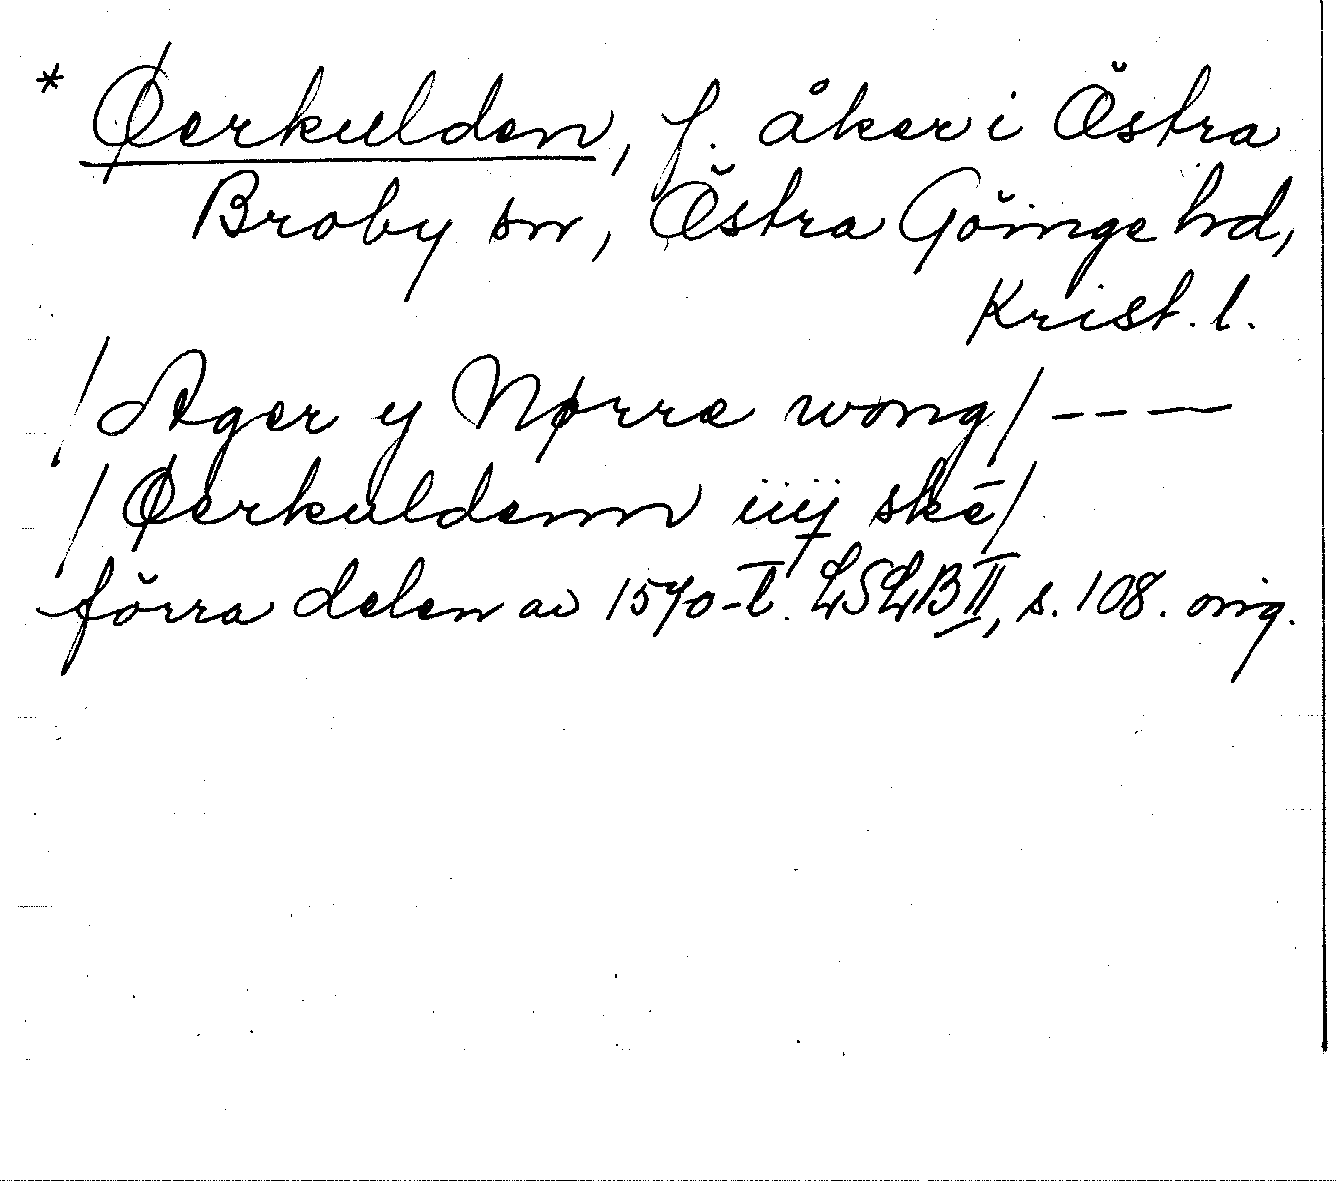 * Øerkulden, f. åker i Östra
Broby sn, Östra Göinge hd,
Krist. l.
/Ager y Nørre wong/ ---
/Øerkuldenn iiij skē/
förra delen av 1570-t. LSLB II, s. 108. orig.